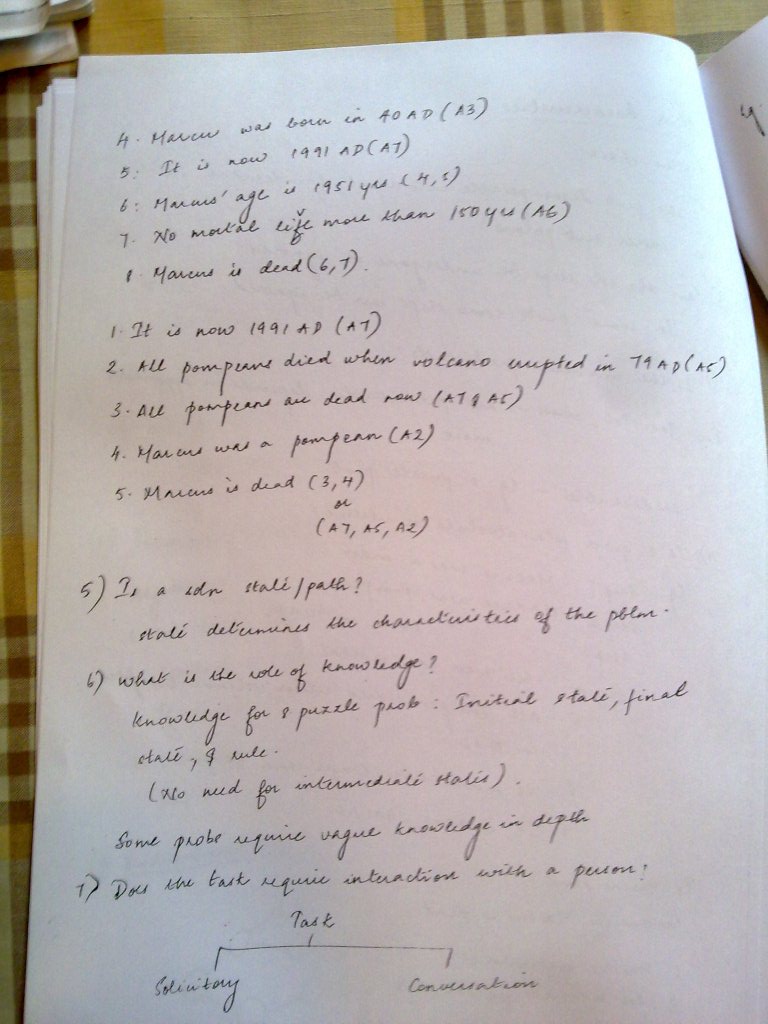 4. Marcus was born in 40 AD (A3)
5. It is now 1991 AD (A7)
6. Marcus' age is 1951 yrs (4,5)
7. No mortal live more than 150 yrs (A6)
8. Marcus is dead (6,7).
1. It is now 1991 AD (A7)
2. All pompeans died when volcano erupted in 79 AD (A5)
3. All pompeans are dead now (A7 & A5)
4. Marcus was a pompean (A2)
5. Marcus is dead (3,4)
or
(A7, A5, A2)
5) Is a soln state/path?
state determines the characteristics of the pblm.
6) What is the role of knowledge?
Knowledge for 8 puzzle prob : Initial state, final
state, & rule.
(No need for intermediate states).
Some probs require vague knowledge in depth
7) Does the task require interaction with a person?
Task
Solicitory Conversation